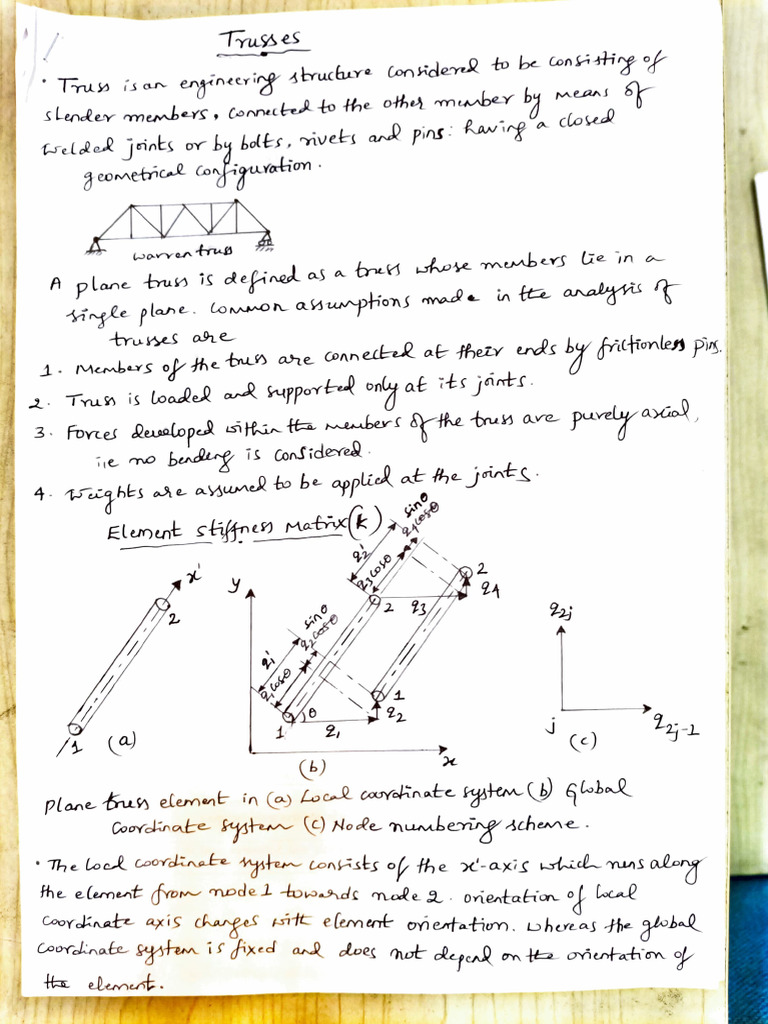 Trusses
• Truss is an engineering structure considered to be consisting of
slender members, connected to the other member by means of
welded joints or by bolts, rivets and pins: having a closed
geometrical configuration.
warren truss
A plane truss is defined as a truss whose members lie in a
single plane. Common assumptions made in the analysis of
trusses are
1. Members of the truss are connected at their ends by frictionless pins.
2. Truss is loaded and supported only at its joints.
3. Forces developed within the members of the truss are purely axial,
i.e no bending is considered.
4. Weights are assumed to be applied at the joints.
Element stiffness Matrix (k)
x'
2
1
(a)
y
q1'
q1cosθ
q2cosθ
sinθ
q2'
q3cosθ
q4cosθ
sinθ
2
q3
2
q4
1
θ
q1
1
q2
x
(b)
q2j
j
q2j-1
(c)
plane truss element in (a) Local coordinate system (b) Global
Coordinate system (c) Node numbering scheme.
• The local coordinate system consists of the x'-axis which runs along
the element from node 1 towards node 2. orientation of local
coordinate axis changes with element orientation. whereas the global
coordinate system is fixed and does not depend on the orientation of
the element.